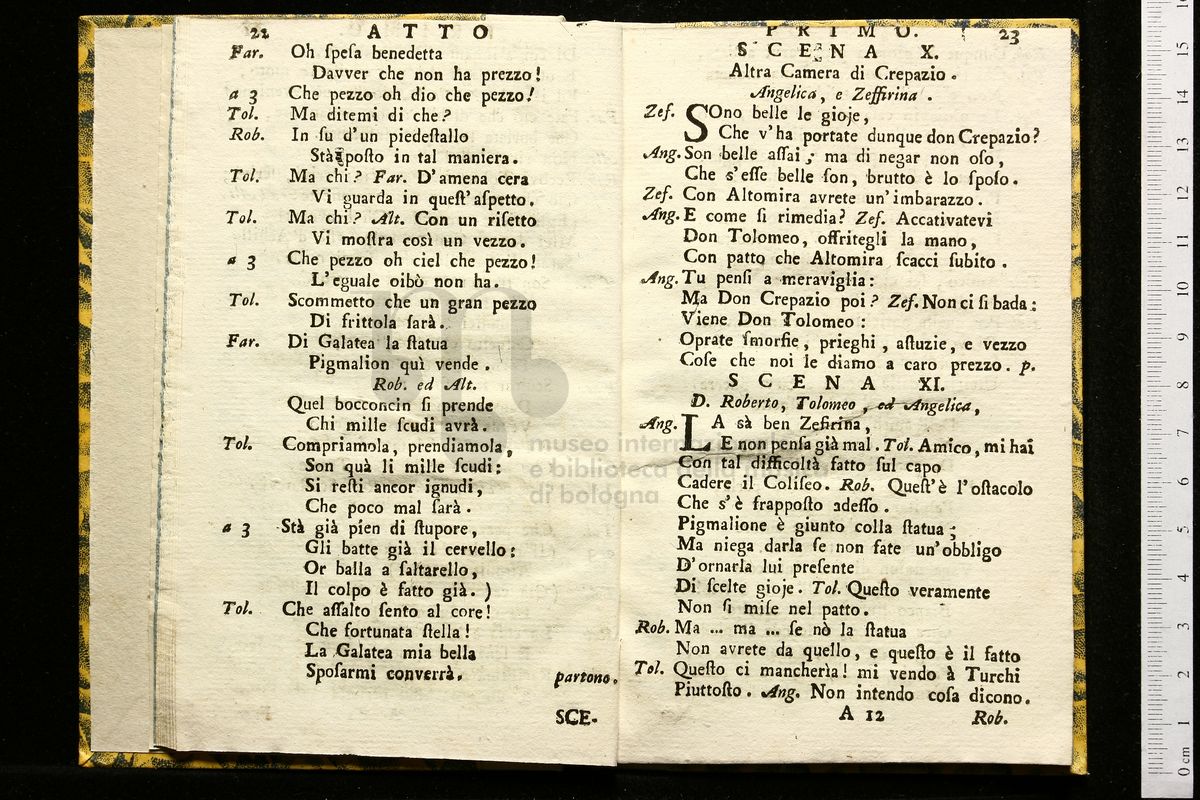 22 ATTO
Far. Oh ſpeſa benedetta
Davver che non ha prezzo!
a 3 Che pezzo oh dio che pezzo!
Tol. Ma ditemi di che?
Rob. In ſu d'un piedeſtallo
Stà poſto in tal maniera.
Tol. Ma chi? Far. D'amena cera
Vi guarda in queſt'aſpetto.
Tol. Ma chi? Alt. Con un riſetto
Vi moſtra così un vezzo.
a 3 Che pezzo oh ciel che pezzo!
L'eguale oibò non ha.
Tol. Scommetto che un gran pezzo
Di frittola ſarà.
Far. Di Galatea la ſtatua
Pigmalion quì vende.
Rob. ed Alt.
Quel bocconcin ſi prende
Chi mille ſcudi avrà.
Tol. Compriamola, prendiamola,
Son quà li mille ſcudi:
Si reſti ancor ignudi,
Che poco mal ſarà.
a 3 Stà già pien di ſtupore,
Gli batte già il cervello:
Or balla a ſaltarello,
Il colpo è fatto già. )
Tol. Che aſſalto ſento al core!
Che fortunata ſtella!
La Galatea mia bella
Spoſarmi converrà. partono.
SCE-
PRIMO. 23
SCENA X.
Altra Camera di Crepazio.
Angelica, e Zeffirina.
Zef. SOno belle le gioje,
Che v'ha portate dunque don Crepazio?
Ang. Son belle aſſai; ma di negar non oſo,
Che s'eſſe belle ſon, brutto è lo ſpoſo.
Zef. Con Altomira avrete un'imbarazzo.
Ang. E come ſi rimedia? Zef. Accativatevi
Don Tolomeo, offritegli la mano,
Con patto che Altomira ſcacci ſubito.
Ang. Tu penſi a meraviglia:
Ma Don Crepazio poi? Zef. Non ci ſi bada:
Viene Don Tolomeo:
Oprate ſmorfie, prieghi, aſtuzie, e vezzo
Coſe che noi le diamo a caro prezzo. p.
SCENA XI.
D. Roberto, Tolomeo, ed Angelica,
Ang. LA sà ben Zefirina,
E non penſa già mal. Tol. Amico, mi hai
Con tal difficoltà fatto ſul capo
Cadere il Coliſeo. Rob. Queſt'è l'oſtacolo
Che s'è frappoſto adeſſo.
Pigmalione è giunto colla ſtatua;
Ma niega darla ſe non fate un'obbligo
D'ornarla lui preſente
Di ſcelte gioje. Tol. Queſto veramente
Non ſi miſe nel patto.
Rob. Ma ... ma ... ſe nò la ſtatua
Non avrete da quello, e queſto è il fatto
Tol. Queſto ci mancherìa! mi vendo à Turchi
Piuttoſto. Ang. Non intendo coſa dicono.
A 12 Rob.
museo internazionale
e biblioteca della musica
di bologna
0 cm 1 2 3 4 5 6 7 8 9 10 11 12 13 14 15